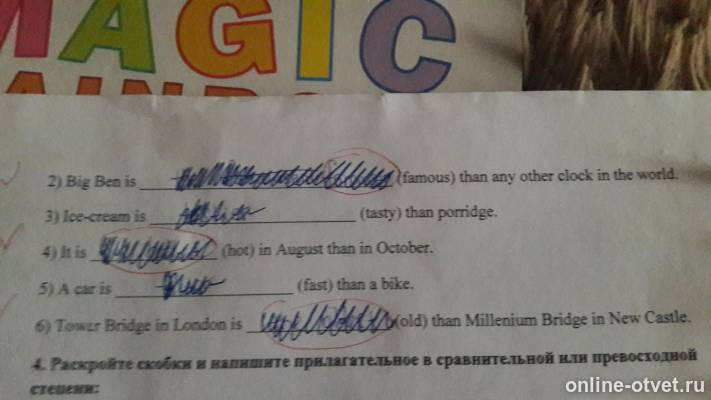 MAGIC
2) Big Ben is ____ (famous) than any other clock in the world.
3) Ice-cream is ____ (tasty) than porridge.
4) It is ____ (hot) in August than in October.
5) A car is ____ (fast) than a bike.
6) Tower Bridge in London is ____ (old) than Millenium Bridge in New Castle.
4. Раскройте скобки и напишите прилагательное в сравнительной или превосходной
степени:
online-otvet.ru